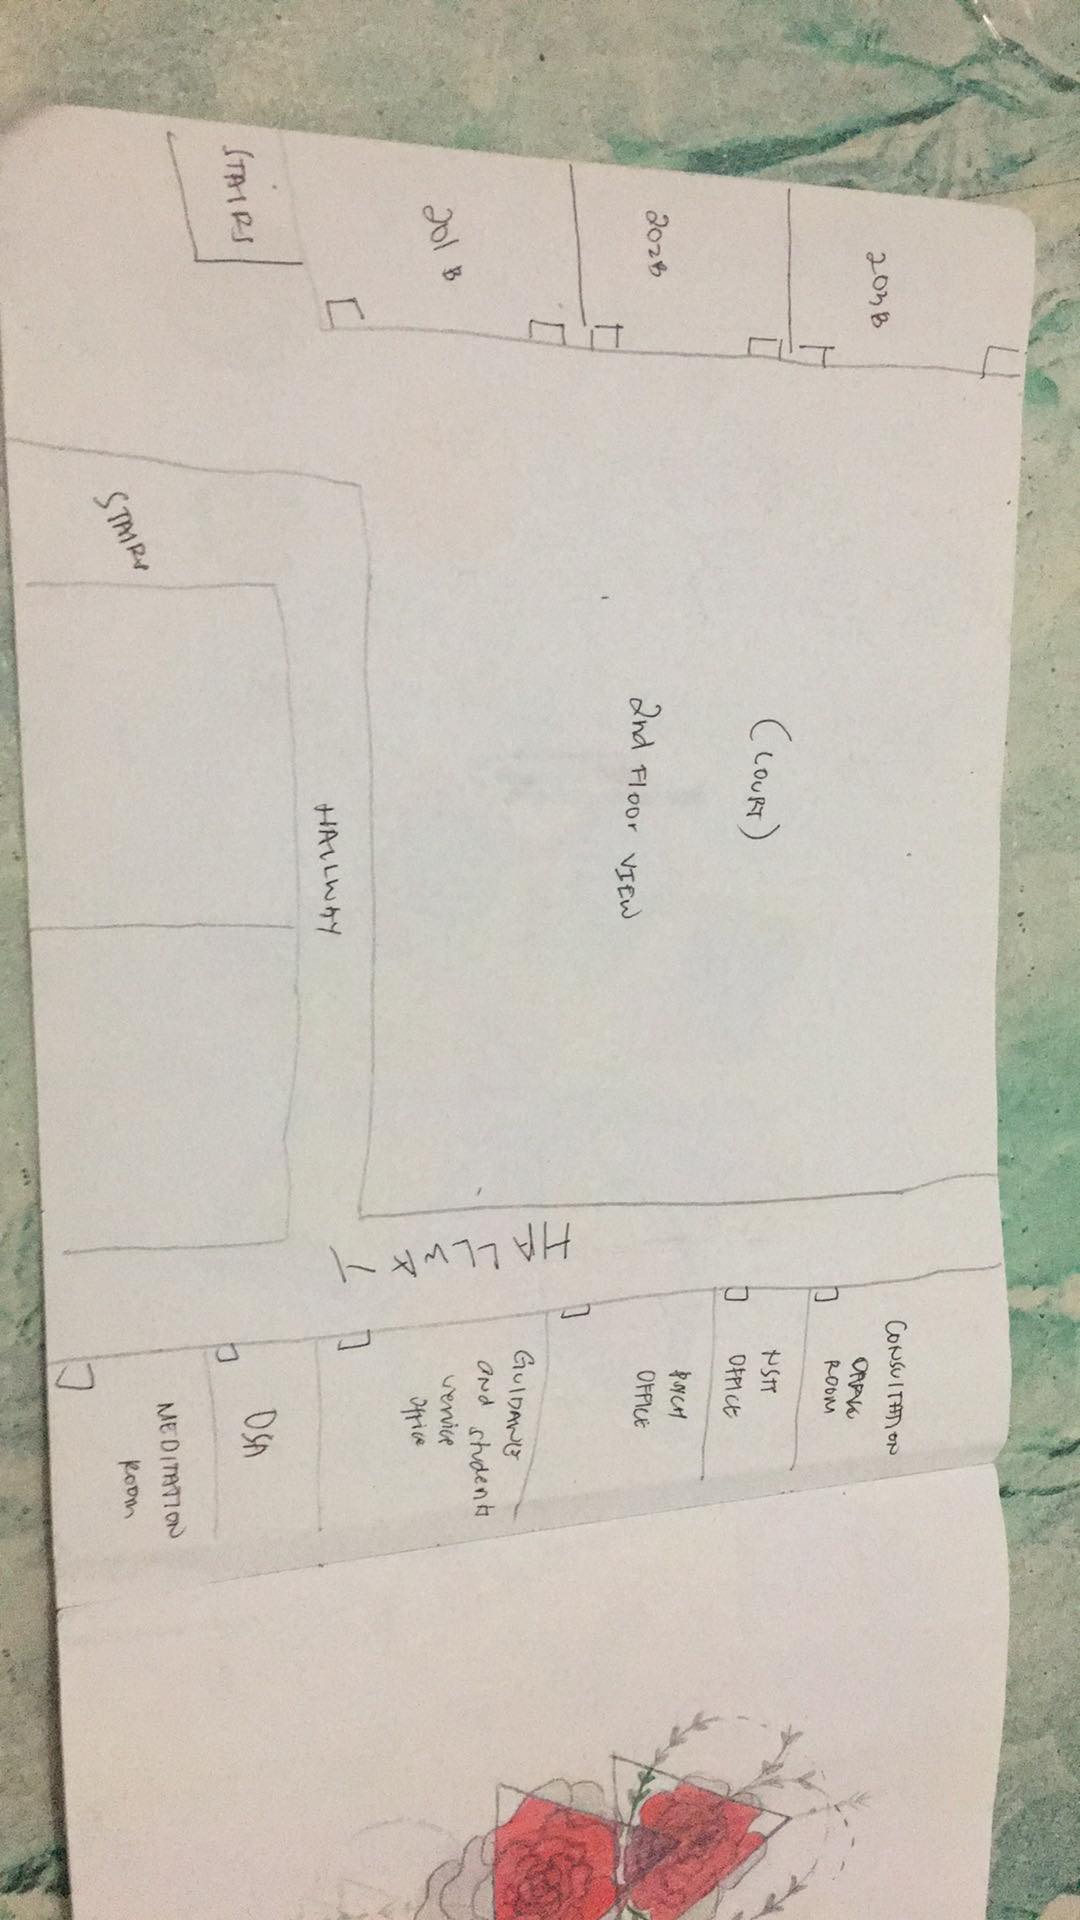 203B
202B
201 B
STAIRS
(COURT)
2nd FLOOR VIEW
HALLWAY
STAIRS
HALLWAY
CONSULTATION
ROOM
OFFICE
PSYCH
OFFICE
GUIDANCE
and students
service
office
OSA
MEDITATION
ROOM